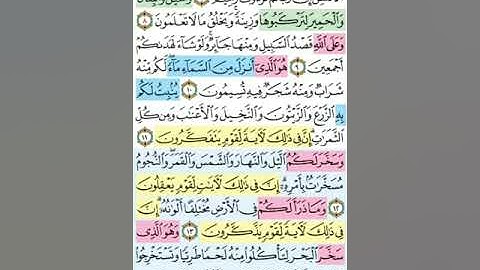 وَٱلْحَمِيرَ لِتَرْكَبُوهَا وَزِينَةً وَيَخْلُقُ مَا لَا تَعْلَمُونَ ٨
وَعَلَى ٱللَّهِ قَصْدُ ٱلسَّبِيلِ وَمِنْهَا جَآئِرٌ وَلَوْ شَآءَ لَهَدَىٰكُمْ
أَجْمَعِينَ ٩ هُوَ ٱلَّذِىٓ أَنزَلَ مِنَ ٱلسَّمَآءِ مَآءً لَّكُم مِّنْهُ
شَرَابٌ وَمِنْهُ شَجَرٌ فِيهِ تُسِيمُونَ ١٠ يُنۢبِتُ لَكُم
بِهِ ٱلزَّرْعَ وَٱلزَّيْتُونَ وَٱلنَّخِيلَ وَٱلْأَعْنَٰبَ وَمِن كُلِّ
ٱلثَّمَرَٰتِ إِنَّ فِى ذَٰلِكَ لَءَايَةً لِّقَوْمٍ يَتَفَكَّرُونَ ١١
وَسَخَّرَ لَكُمُ ٱلَّيْلَ وَٱلنَّهَارَ وَٱلشَّمْسَ وَٱلْقَمَرَ وَٱلنُّجُومُ
مُسَخَّرَٰتٌۢ بِأَمْرِهِۦٓ إِنَّ فِى ذَٰلِكَ لَءَايَٰتٍ لِّقَوْمٍ يَعْقِلُونَ
١٢ وَمَا ذَرَأَ لَكُمْ فِى ٱلْأَرْضِ مُخْتَلِفًا أَلْوَٰنُهُۥٓ إِنَّ
فِى ذَٰلِكَ لَءَايَةً لِّقَوْمٍ يَذَّكَّرُونَ ١٣ وَهُوَ ٱلَّذِى
سَخَّرَ ٱلْبَحْرَ لِتَأْكُلُوا۟ مِنْهُ لَحْمًا طَرِيًّا وَتَسْتَخْرِجُوا۟